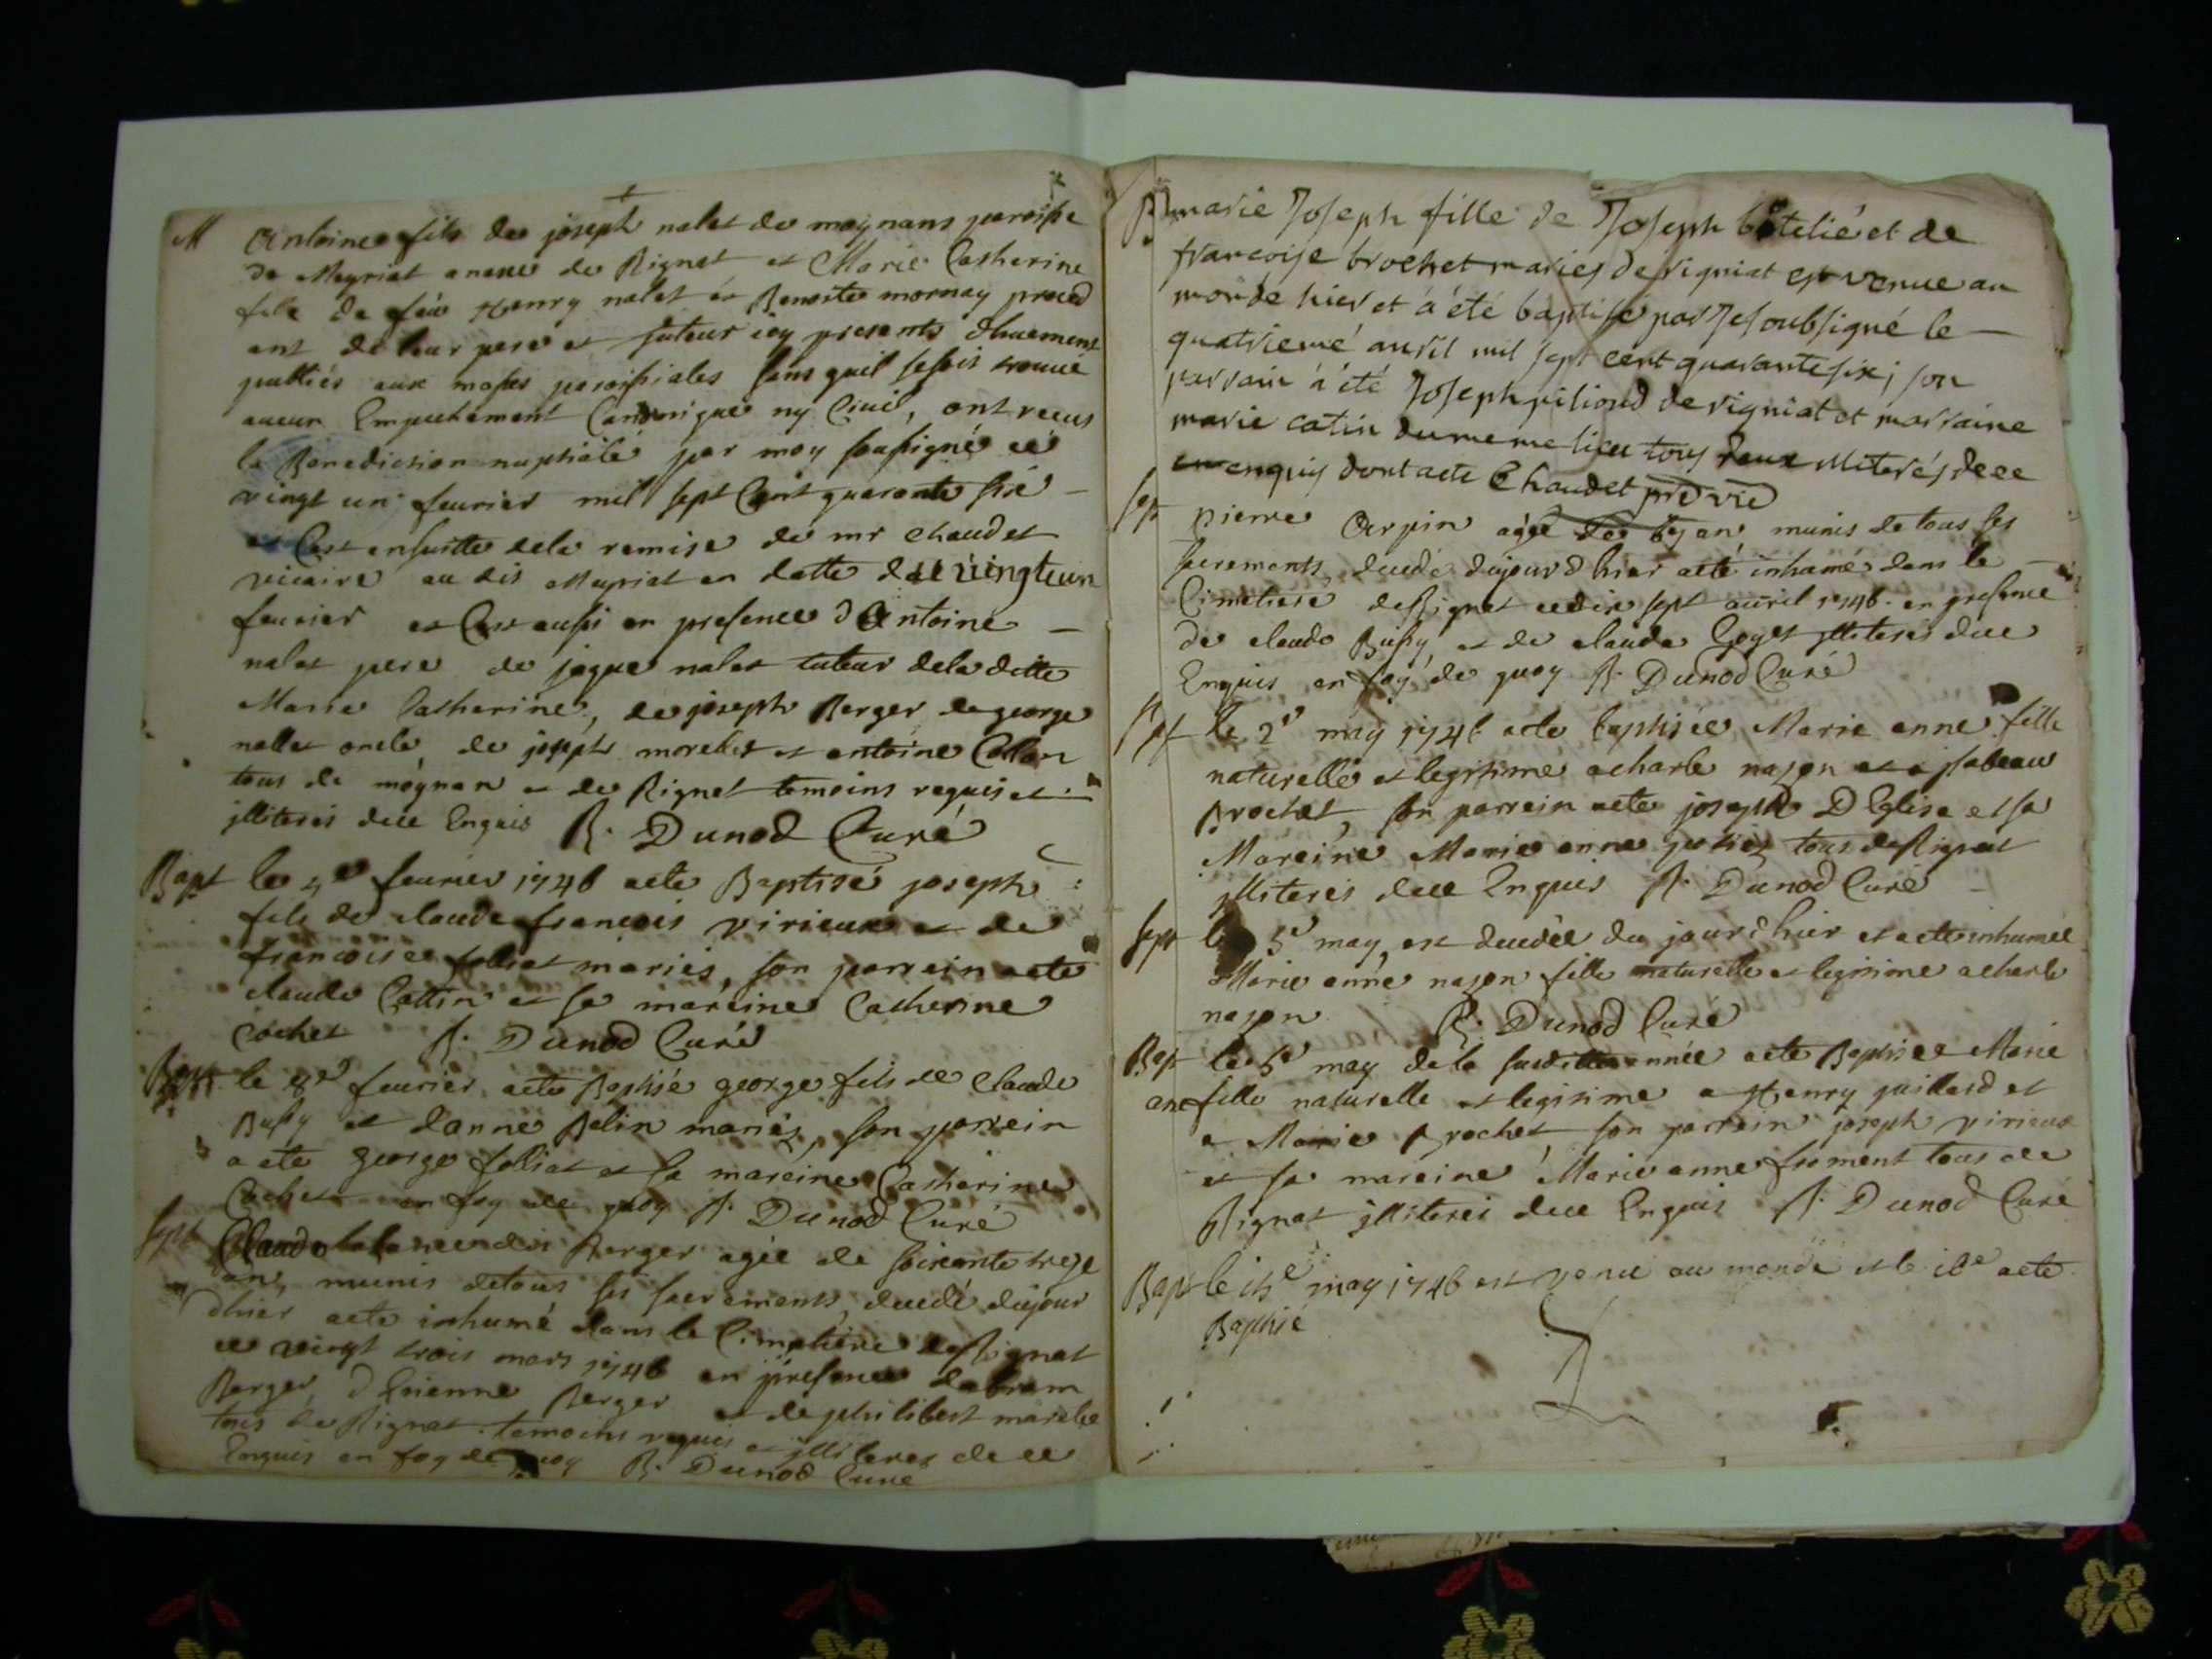 M Antoine fils de joseph nalet de mognans paroisse
de Meyriat anexe de Rignat et Marie Catherine
fille de feu Henry nalet et Benoite mornay proced
ant de leur pere et tuteur icy presents dhuement
publiés aux messes paroissiales sans quil se soit trouué
aucun Empechement Canonique ny Ciuil, ont recus
la Benediction nuptiale par moy soussigné ce
vingt un feurier mil sept Cent quarante six
et Cest ensuitte dela remise de mr chaudet
vicaire au dit Meyriat en datte du vingt un
feurier et Cest aussi en presence d Antoine
nalet pere de jaque nalet tuteur dela ditte
Marie Catherine, de joseph Berger de george
nallet oncle de joseph morelet et antoine Collon
tous de mognan et de Rignat temoins requis et
jlliterés dece Enquis R. Dunod Curé
Bapt le 4e feurier 1746 aété Baptisé joseph
fils de claude francois virieux et de
francoise folliet mariés, son parrain aété
claude Cattin et sa mareine Catherine
Cochet R. Dunod Curé
Bapt le 8e feurier aété Baptisé george fils de Claude
Bussy et danne Belin mariéz, son parrein
a été george folliet et sa mareine Catherine
Cochet en foy de quoy R. Dunod Curé
sept Claude Berger agée de soixante treze
ans munis detous ses sacrements, decedé dujour
dhier aété inhumé dans le Cimetiere de Rignat
ce vingt trois mars 1746 en presence dabram
Berger, d Etienne Berger et de philibert
tous de Rignat temoins requis et jlliterés de ce
Enquis en foy de quoy R. Dunod Curé
marie Joseph fille de Joseph batelié et de
francoise brochet mariés de rigniat est venue au
monde hier et a été baptisé par Je soubsigné le
quatrieme auril mil sept cent quarante six; son
parrain a été Joseph piliond de rigniat et marraine
marie catin du meme lieu tous deux illiterés de ce
enquis dont acte Chaudet pre vic
sep pierre Arpin agé de 65 an munis de tous ses
sacrements, decedé dujourd hier aété inhumé dans le
Cimetiere de Rignat ce dix sept auril 1746. en presence
de claude Bussy, et de claude Goyet jlliterés dece
Enquis en foy de quoy R. Dunod Curé
le 2e may 1746 aété baptisée Marie anne fille
naturelle et legitime acharle nazon et a jsabeau
Brochet, son parrein aété joseph D Eglise et sa
Mareine Marie anne tous de Rignat
jlliterés dece Enquis R. Dunod Curé
sept le 5e may, est decedée du jourdhier et aété inhumée
Marie anne nazon fille naturelle et legitime acharle
nazon R. Dunod Curé
Bap le 5e may de la susditte année aété Baptisée Marie
ane fille naturelle et legitime a Henry juillard et
a Marie Brochet son parrain joseph virieux
et sa mareine Marie anne froment tous de
Rignat jlliterés dece Enquis R. Dunod Curé
Bap le 15e may 1746 est venu au monde et le 16e aété
Baptisé